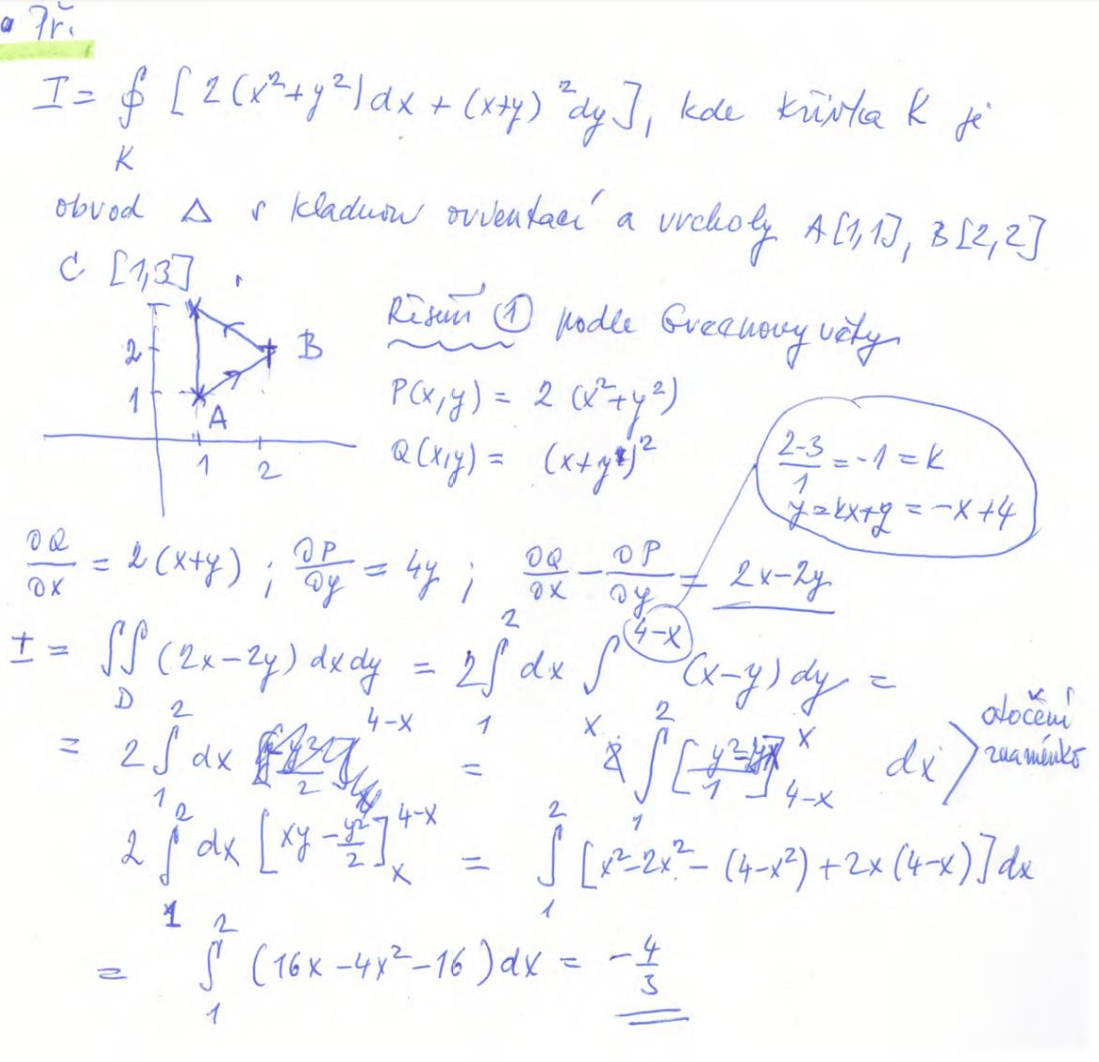 Př.
I = ∮ [2(x²+y²)dx + (x+y)²dy], kde křivka K je
K
obvod △ s kladnou orientací a vrcholy A[1,1], B[2,2]
C [1,3].
Řešení ① podle Greenovy věty
2 B
1 A
1 2
P(x,y) = 2 (x²+y²)
Q(x,y) = (x+y)²
2-3/1 = -1 = k
y = kx+q = -x+4
∂Q/∂x = 2(x+y) ; ∂P/∂y = 4y ; ∂Q/∂x - ∂P/∂y = 2x-2y
I = ∬_D (2x-2y) dxdy = 2∫_1^2 dx ∫_x^{4-x} (x-y) dy =
= 2∫_1^2 dx []^{4-x} = ∫_1^2 [y²-2yx/1]_{4-x}^x dx otočení
znaménko
2∫_1^2 dx [xy - y²/2]_x^{4-x} = ∫_1^2 [x²-2x²-(4-x²)+2x(4-x)]dx
= ∫_1^2 (16x-4x²-16)dx = -4/3